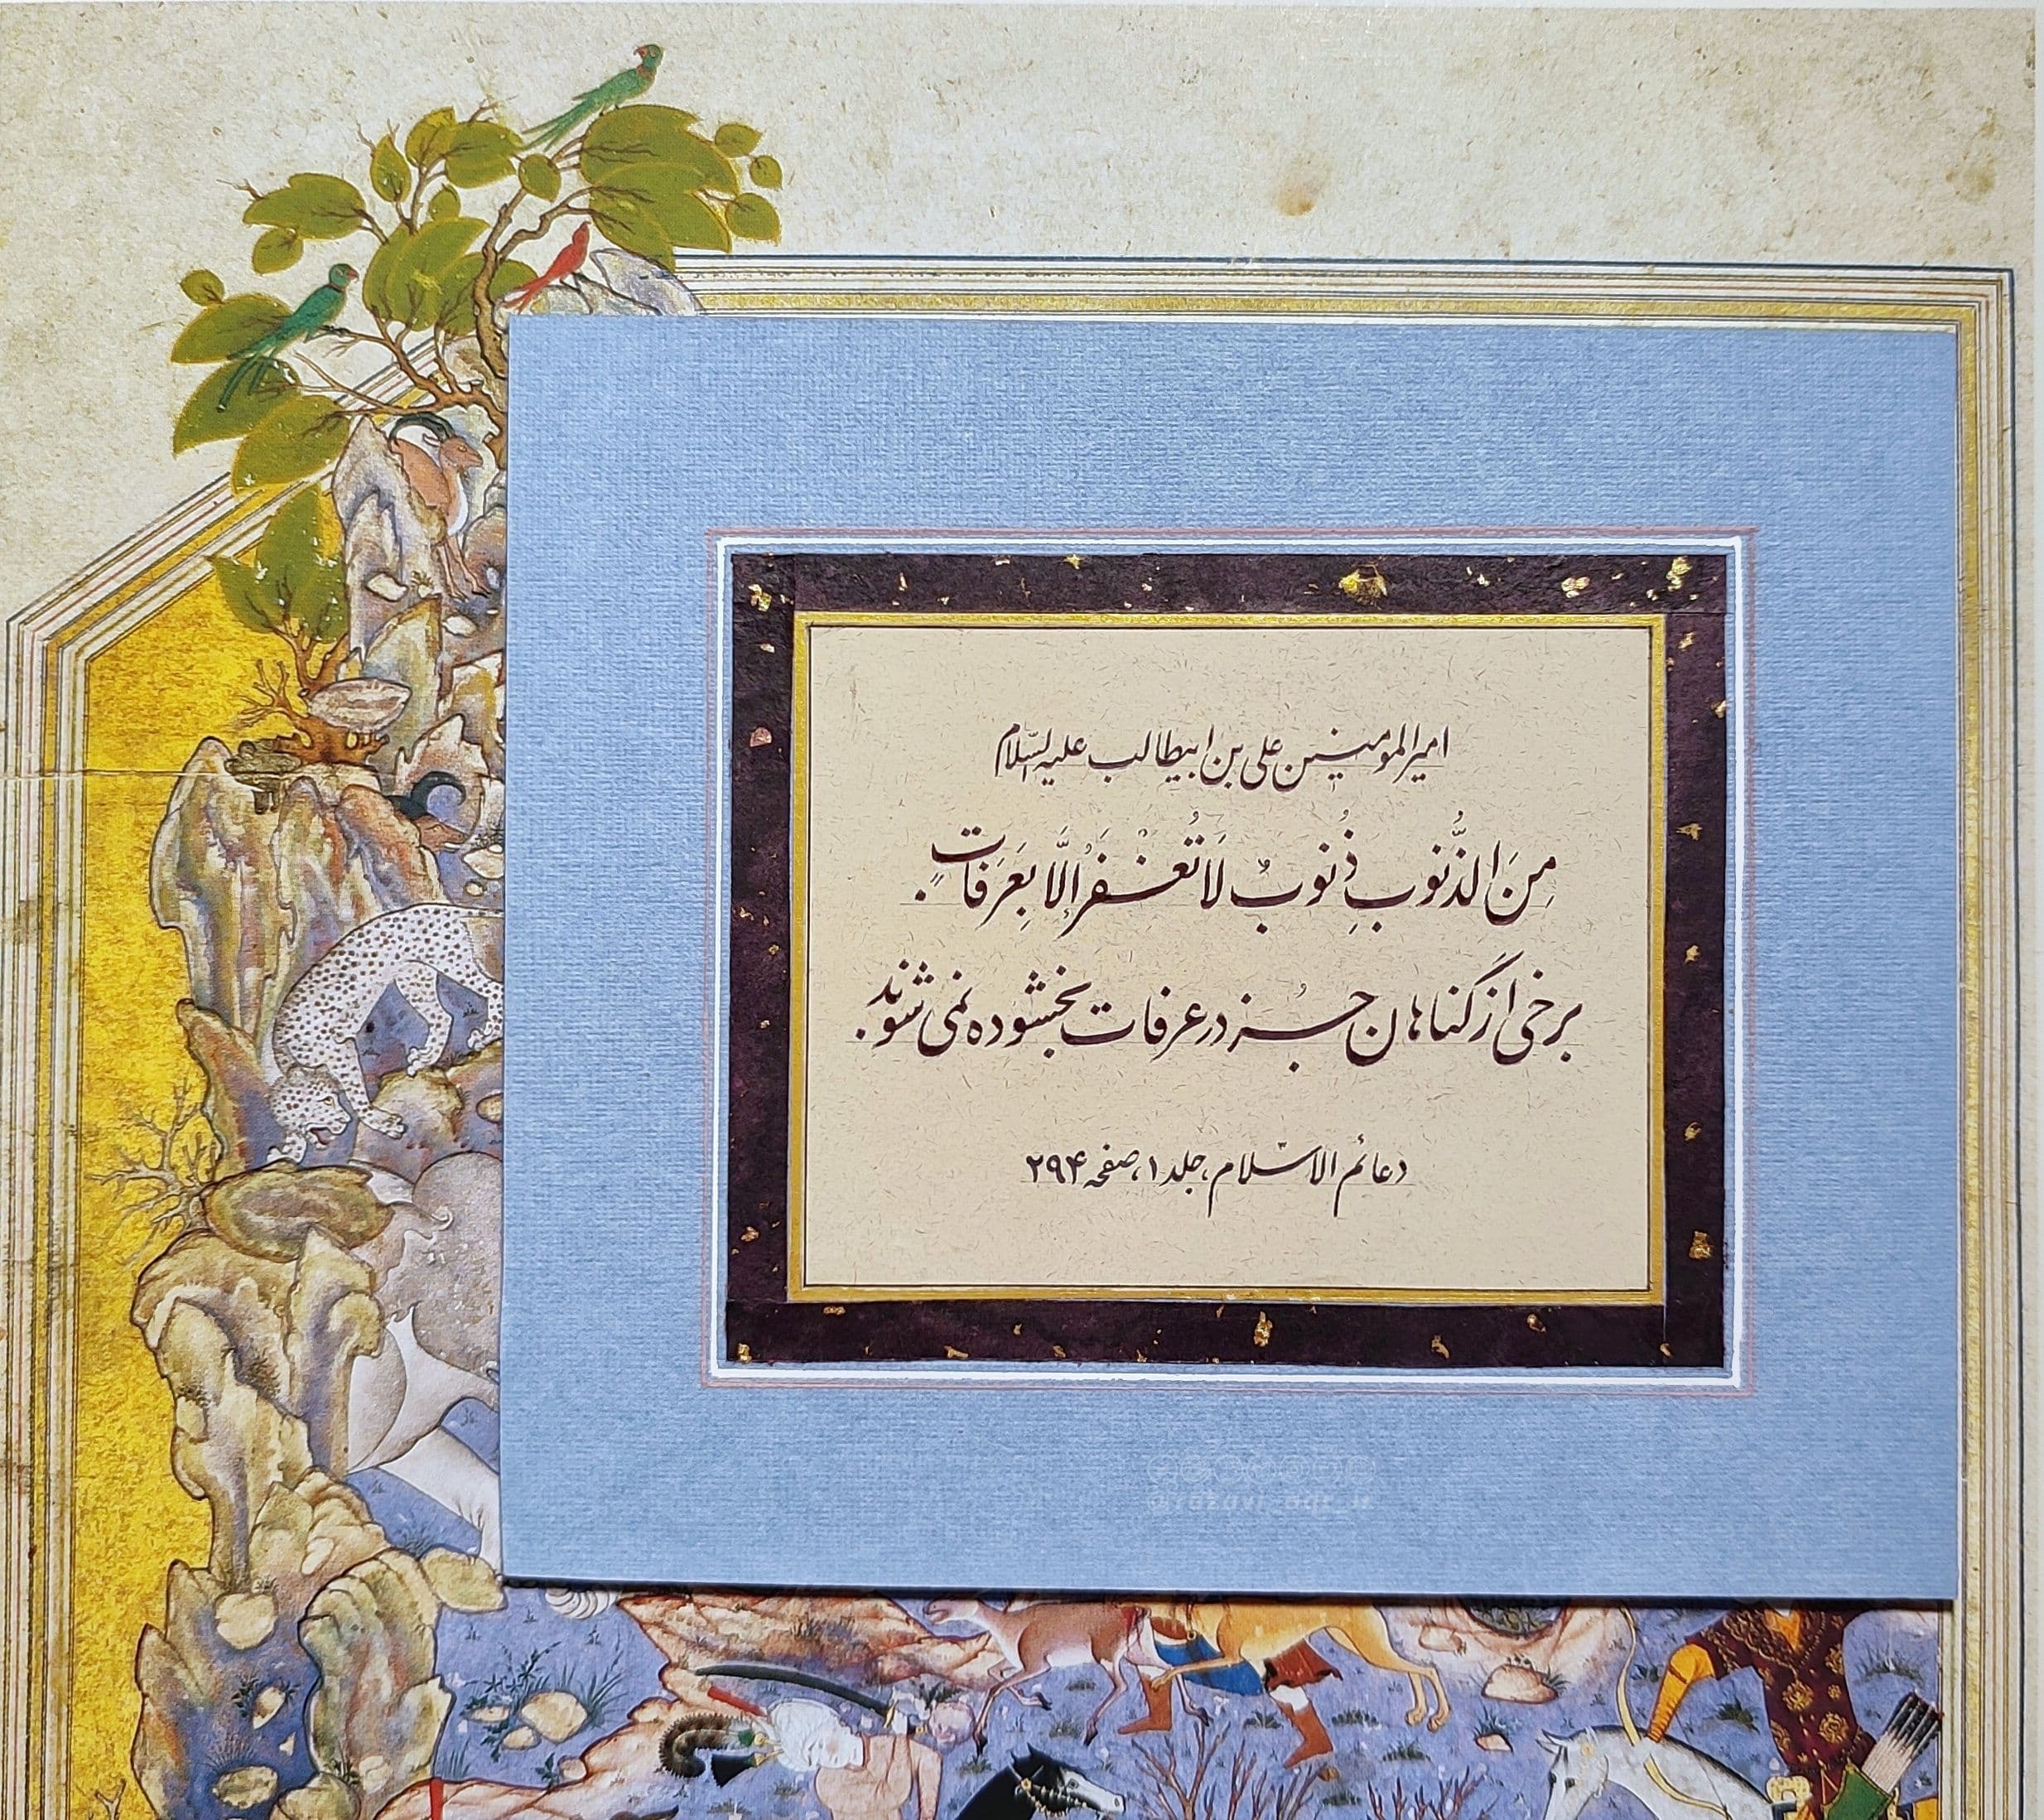 امیرالمومنین علی بن ابیطالب علیه السّلام
مِنَ الذُّنوبِ ذُنوبٌ لَا تُغْفَرُ إلَّا بِعَرَفَاتٍ.
برخی از گناهان جُز در عرفات بخشوده نمی شوند.
دعائم الاسّلام، جلد ۱، صفحه ۲۹۴